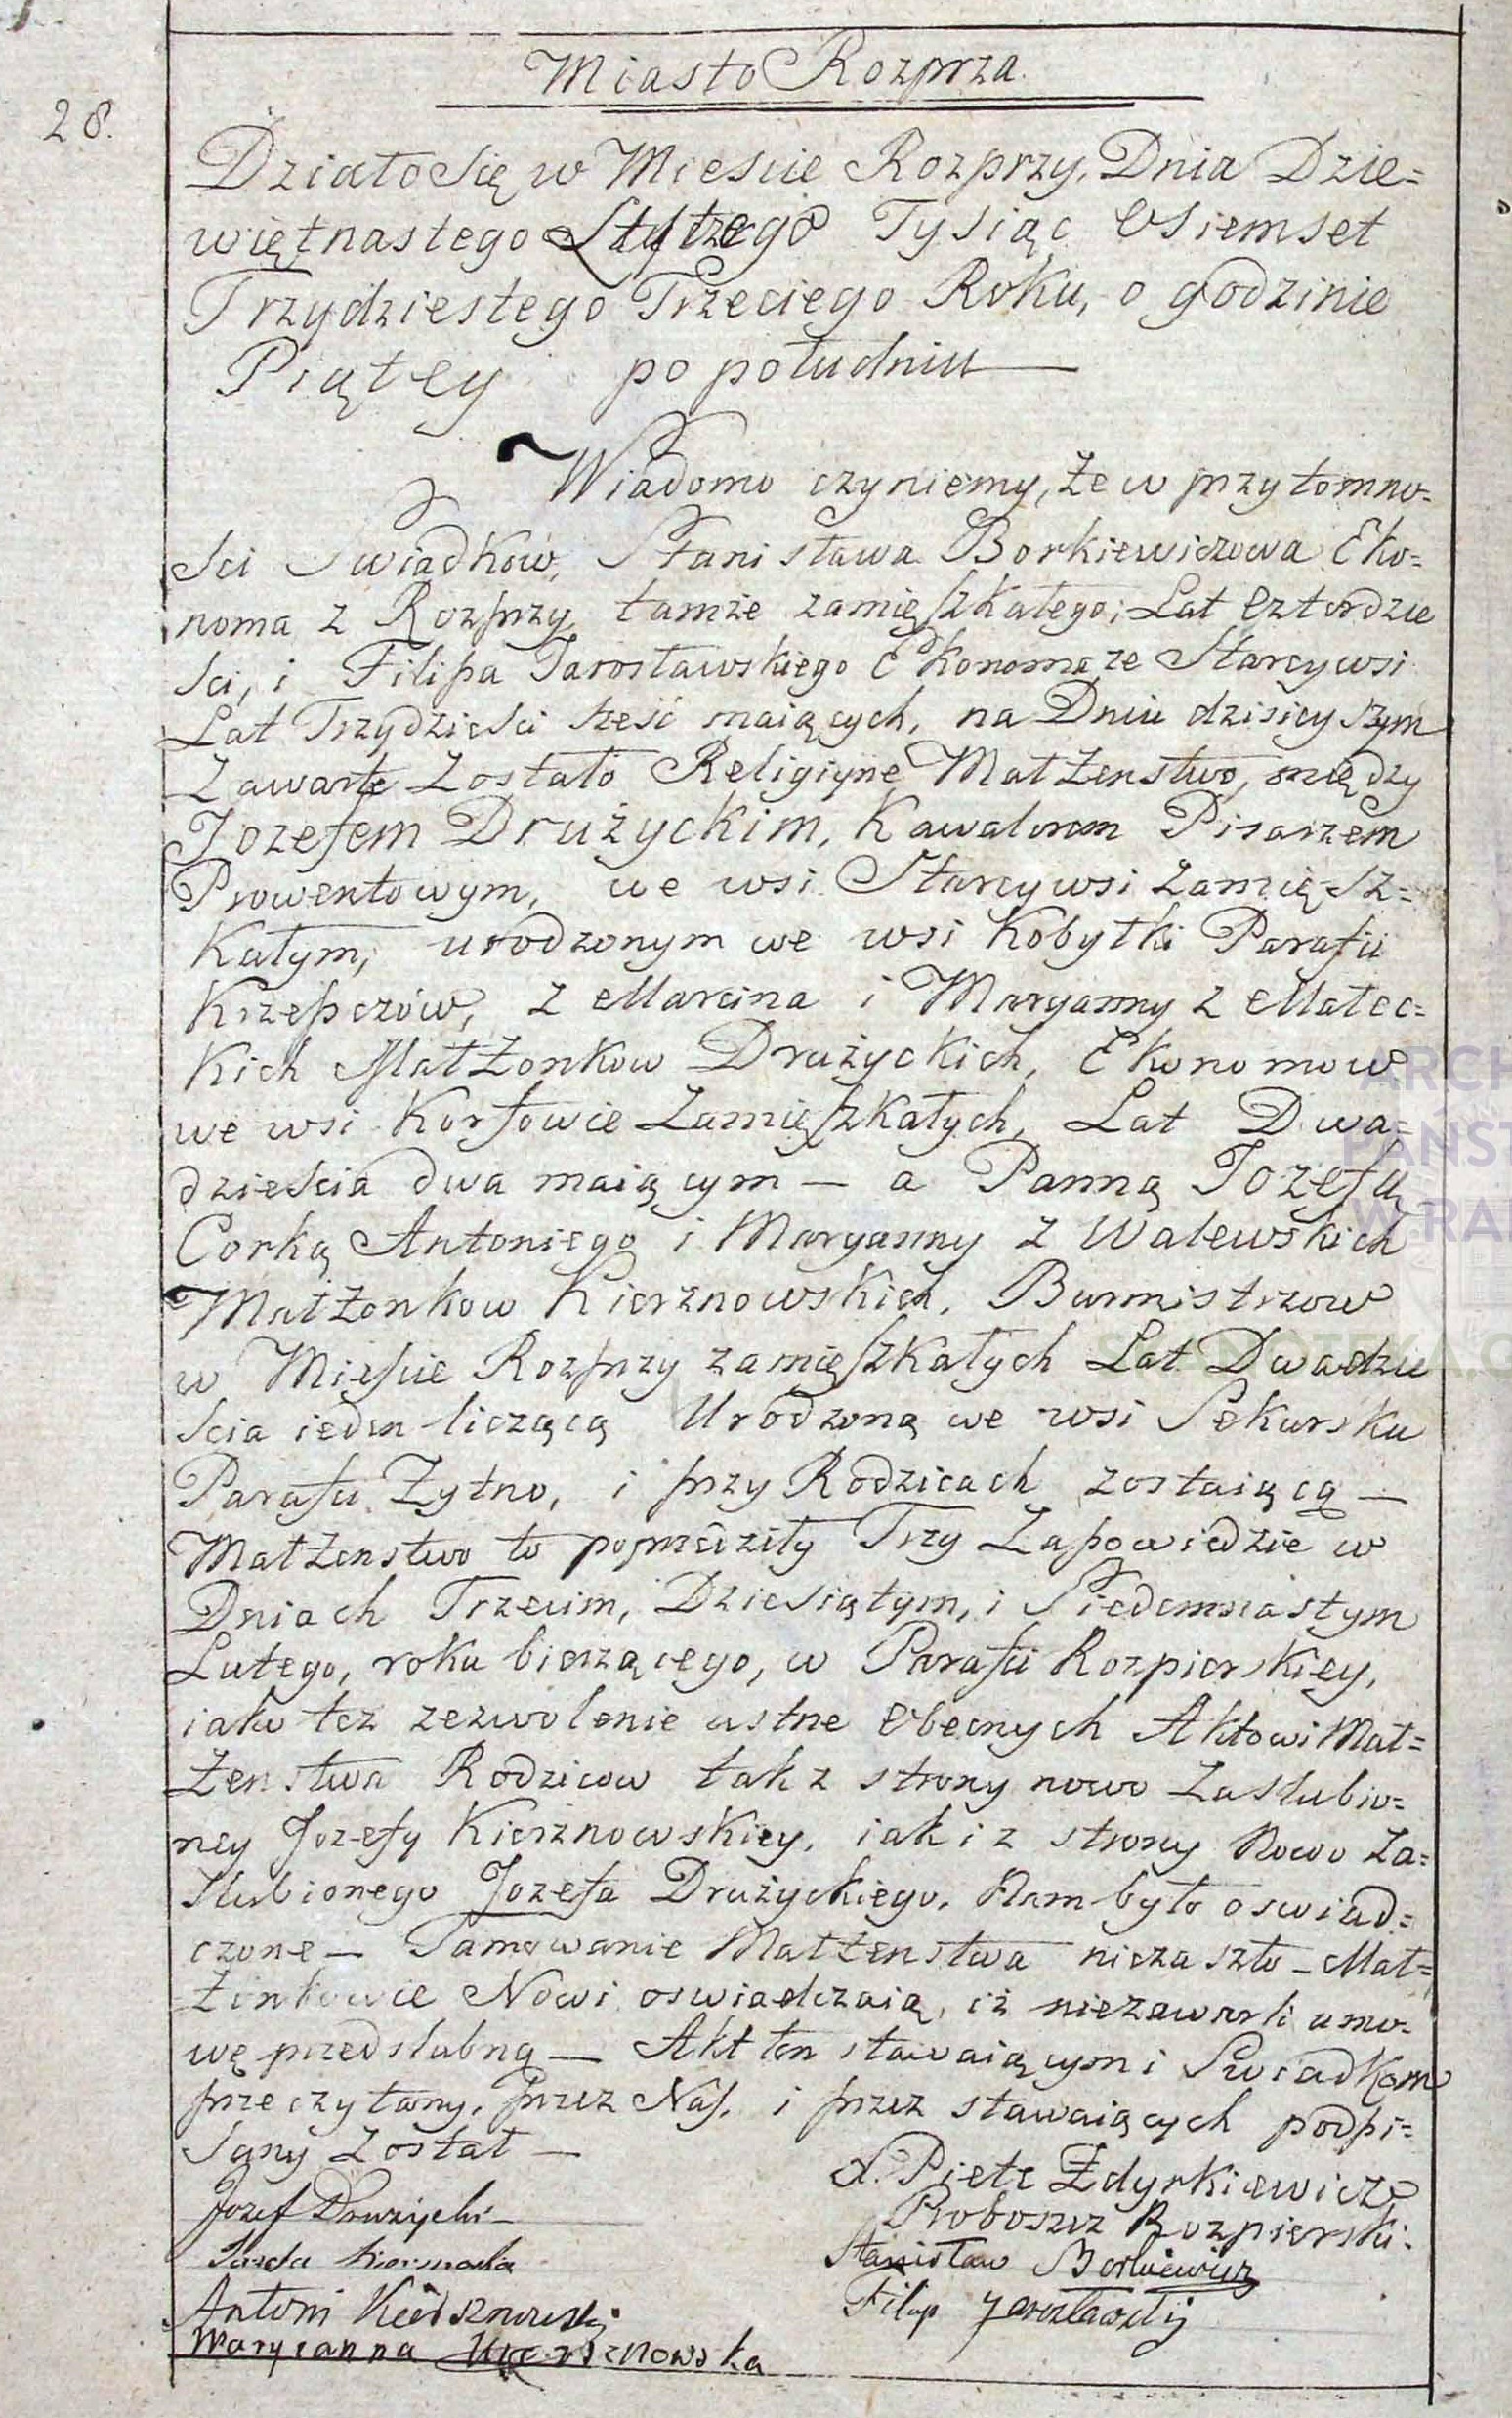 Miasto Rozprza.
28.
Działo Się w Mieście Rozprzy, Dnia Dzie=
więtnastego Tysiąc Osiemset
Trzydziestego Trzeciego Roku, o godzinie
Piątey po południu —
Wiadomo czyniemy, że w przytomno=
Sci Swiadków, Stanisława Borkiewiczowa Eko=
noma z Rozprzy, tamże zamięszkałego, Lat czterdzie
Sci, i Filipa Jarosławskiego Ekonoma ze Starcywsi
Lat Trzydzieści sześć maiących, na Dniu dzisieyszym
Zawarte Zostało Religiyne Małżenstwo, między
Jozefem Drużyckim, Kawalerem Pisarzem
Prowentowym, we wsi Starcywsi zamięsz=
kałym, urodzonym we wsi Kobyłki Parafii
Krzepczów, z Marcina i Maryanny z Małec=
kich Małżonkow Drużyckich, Ekonomow
we wsi Korfowie Zamięszkałych, Lat Dwa=
dzieścia dwa maiącym — a Panną Jozefą
Corką Antoniego i Maryanny z Walewskich
Małżonkow Kierznowskich, Burmistrzow
w Mieście Rozprzy zamięszkałych Lat Dwadzie
ścia ieden liczącą Urodzoną we wsi Sekursku
Parafii Żytno, i przy Rodzicach zostaiącą —
Małżenstwo to poprzedziły Trzy Zapowiedzie w
Dniach Trzecim, Dziesiątym, i Siedemnastym
Lutego, roku bieżącego, w Parafii Rozpierskiey,
iako też zezwolenie ustne Obecnych Aktowi Mał=
żenstwa Rodzicow tak z strony nowo Zaslubio=
ney Jozefy Kierznowskiey, iak i z strony Nowo Za=
Slubionego Jozefa Drużyckiego, Nam było oswiad=
czone — Tamowanie Małżenstwa niezaszło — Mał=
żonkowie Nowi oswiadczaią, iż niezawarli umo=
wę przedslubną — Akt ten stawaiącym i Swiadkom
przeczytany, przez Nas, i przez stawaiących podpi=
Sany Zostal —
X. Piotr Żdyrkiewicz
Proboszcz Rozpierski.
Jozef Drużycki
Stanisław Borkiewicz
Filip Jarosławskij
Antoni Kierznowski
Maryianna Kierznowska